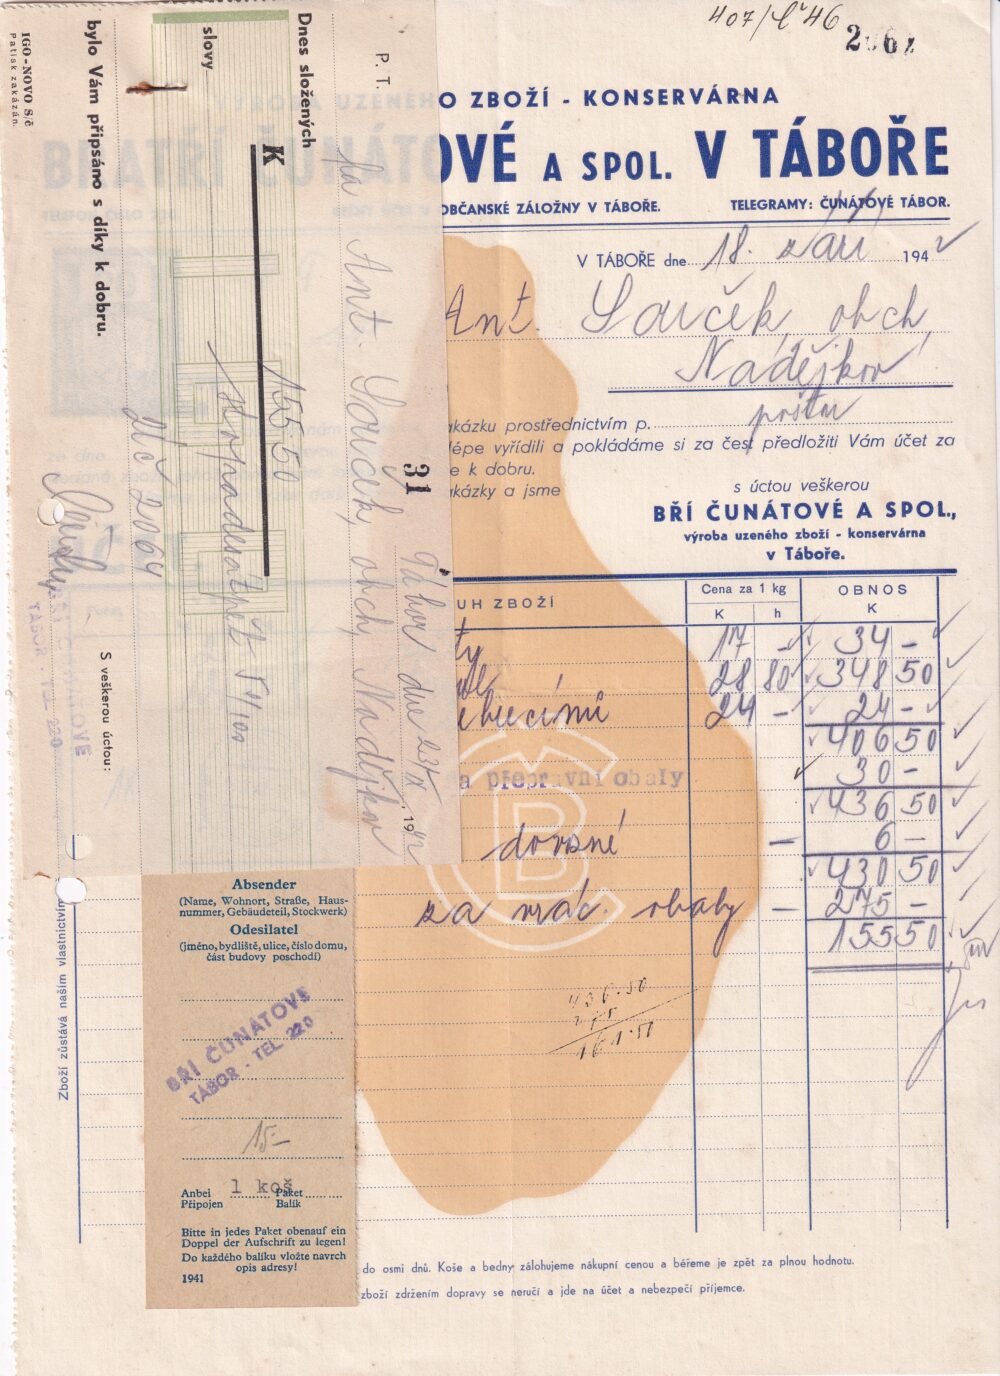 407/Čs 46
O ZBOŽÍ - KONSERVÁRNA
OVÉ A SPOL. V TÁBOŘE
OBČANSKÉ ZÁLOŽNY V TÁBOŘE. TELEGRAMY: ČUNÁTOVÉ TÁBOR.
V TÁBOŘE dne 18. září 1942
Ant. Souček, obch,
Nadějkov
akázku prostřednictvím p. poštu
lépe vyřídili a pokládáme si za čest předložiti Vám účet za
e k dobru.
akázky a jsme
s úctou veškerou
BŘÍ ČUNÁTOVÉ A SPOL.,
výroba uzeného zboží - konservárna
v Táboře.
UH ZBOŽÍ Cena za 1 kg OBNOS
K h K
ty 17 - 34 -
28 80 348 50
24 - 24 -
406 50
a přepravní obaly 30 -
436 50
dovozné - 6 -
430 50
za vrác. obaly - 275 -
155 50
436.50
275
161.50
do osmi dnů. Koše a bedny zálohujeme nákupní cenou a béřeme je zpět za plnou hodnotu.
zboží zdržením dopravy se neručí a jde na účet a nebezpečí příjemce.
Zboží zůstává naším vlastnictvím
P. T.
Fa Ant. Souček, obch, Nadějkov
31
Tábor dne 23/IX 1942
Dnes složených
K 155.50
slovy stopadesátpět 50/100
Úč 2064
bylo Vám připsáno s díky k dobru.
S veškerou úctou:
BŘÍ ČUNÁTOVÉ
TÁBOR - TEL. 220
IGO-NOVO S/č
Patisk zakázán.
Absender
(Name, Wohnort, Straße, Haus-
nummer, Gebäudeteil, Stockwerk)
Odesilatel
(jméno, bydliště, ulice, číslo domu,
část budovy poschodí)
BŘÍ ČUNÁTOVÉ
TÁBOR - TEL. 220
15.-
Anbei 1 koš Paket
Připojen Balík
Bitte in jedes Paket obenauf ein
Doppel der Aufschrift zu legen!
Do každého balíku vložte navrch
opis adresy!
1941